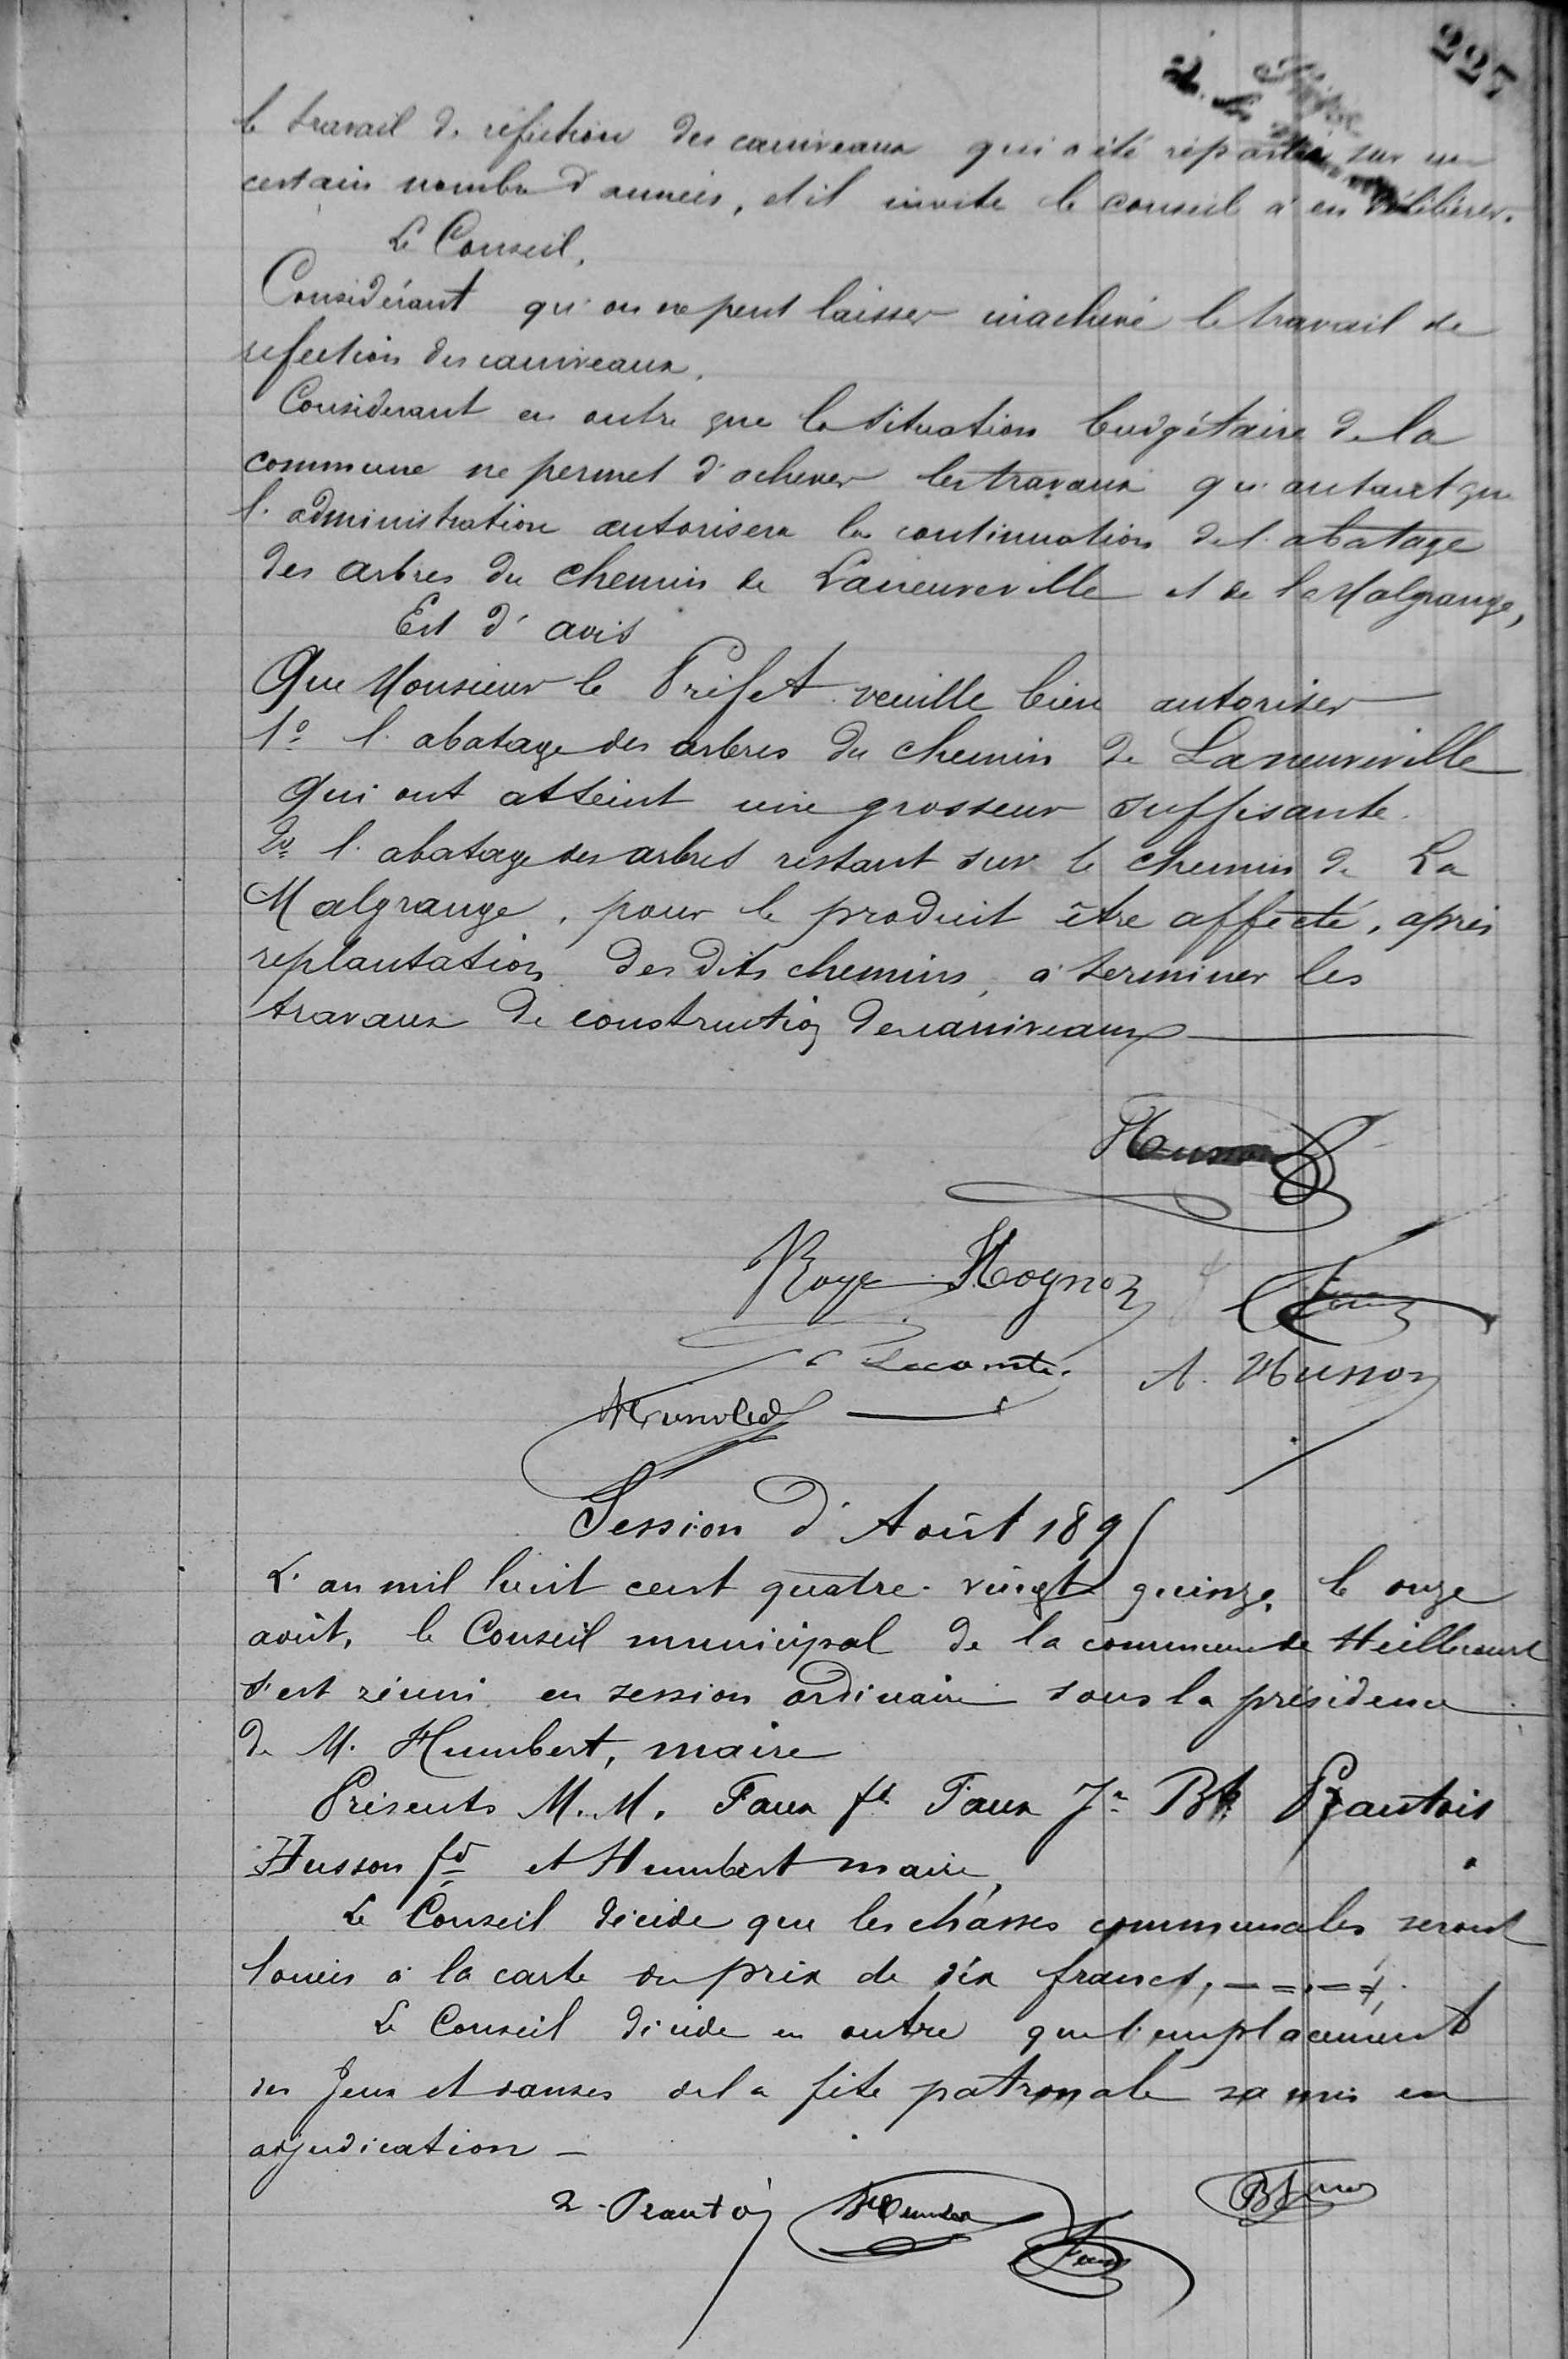 227
le travail de réfection des caniveaux qui a été répartie sur un
certain nombre d'années, et il invite le conseil à en délibérer.
Le Conseil,
Considérant qu'on ne peut laisser inachevé le travail de
refection des caniveaux,
Considerant en outre que la situation budgétaire de la
commune ne permet d'achever les travaux qu'autant que
l'administration autorisera la continuation de l'abatage
des arbres du chemin de Laneuveville et de la Malgrange,
Est d'avis
Que Monsieur le Préfet veuille bien autoriser
1º l'abatage des arbres du chemin de Laneuveville
qui ont atteint une grosseur suffisante.
2º l'abatage des arbres restant sur le chemin de La
Malgrange, pour le produit être affecté, après
replantation des dits chemins, à terminer les
travaux de construction des caniveaux
Husson
Roye Hognon Faux
Lecomte A. Husson
Humbert
Session d'Août 1895
L'an mil huit cent quatre-vingt quinze, le onze
août, le Conseil municipal de la commune de Heillecourt
s'est réuni en session ordinaire sous la présidence
de M. Humbert, maire
Présents M.M. Faux fs Faux Jn Bte Prantois
Husson fd et Humbert maire,
Le Conseil décide que les chasses communales seront
louées à la carte au prix de dix francs,
Le Conseil décide en outre que l'emplacement
des Jeux et danses de la fête patronale sa mis en
adjudication -
Prantois Humbert Faux B Faux